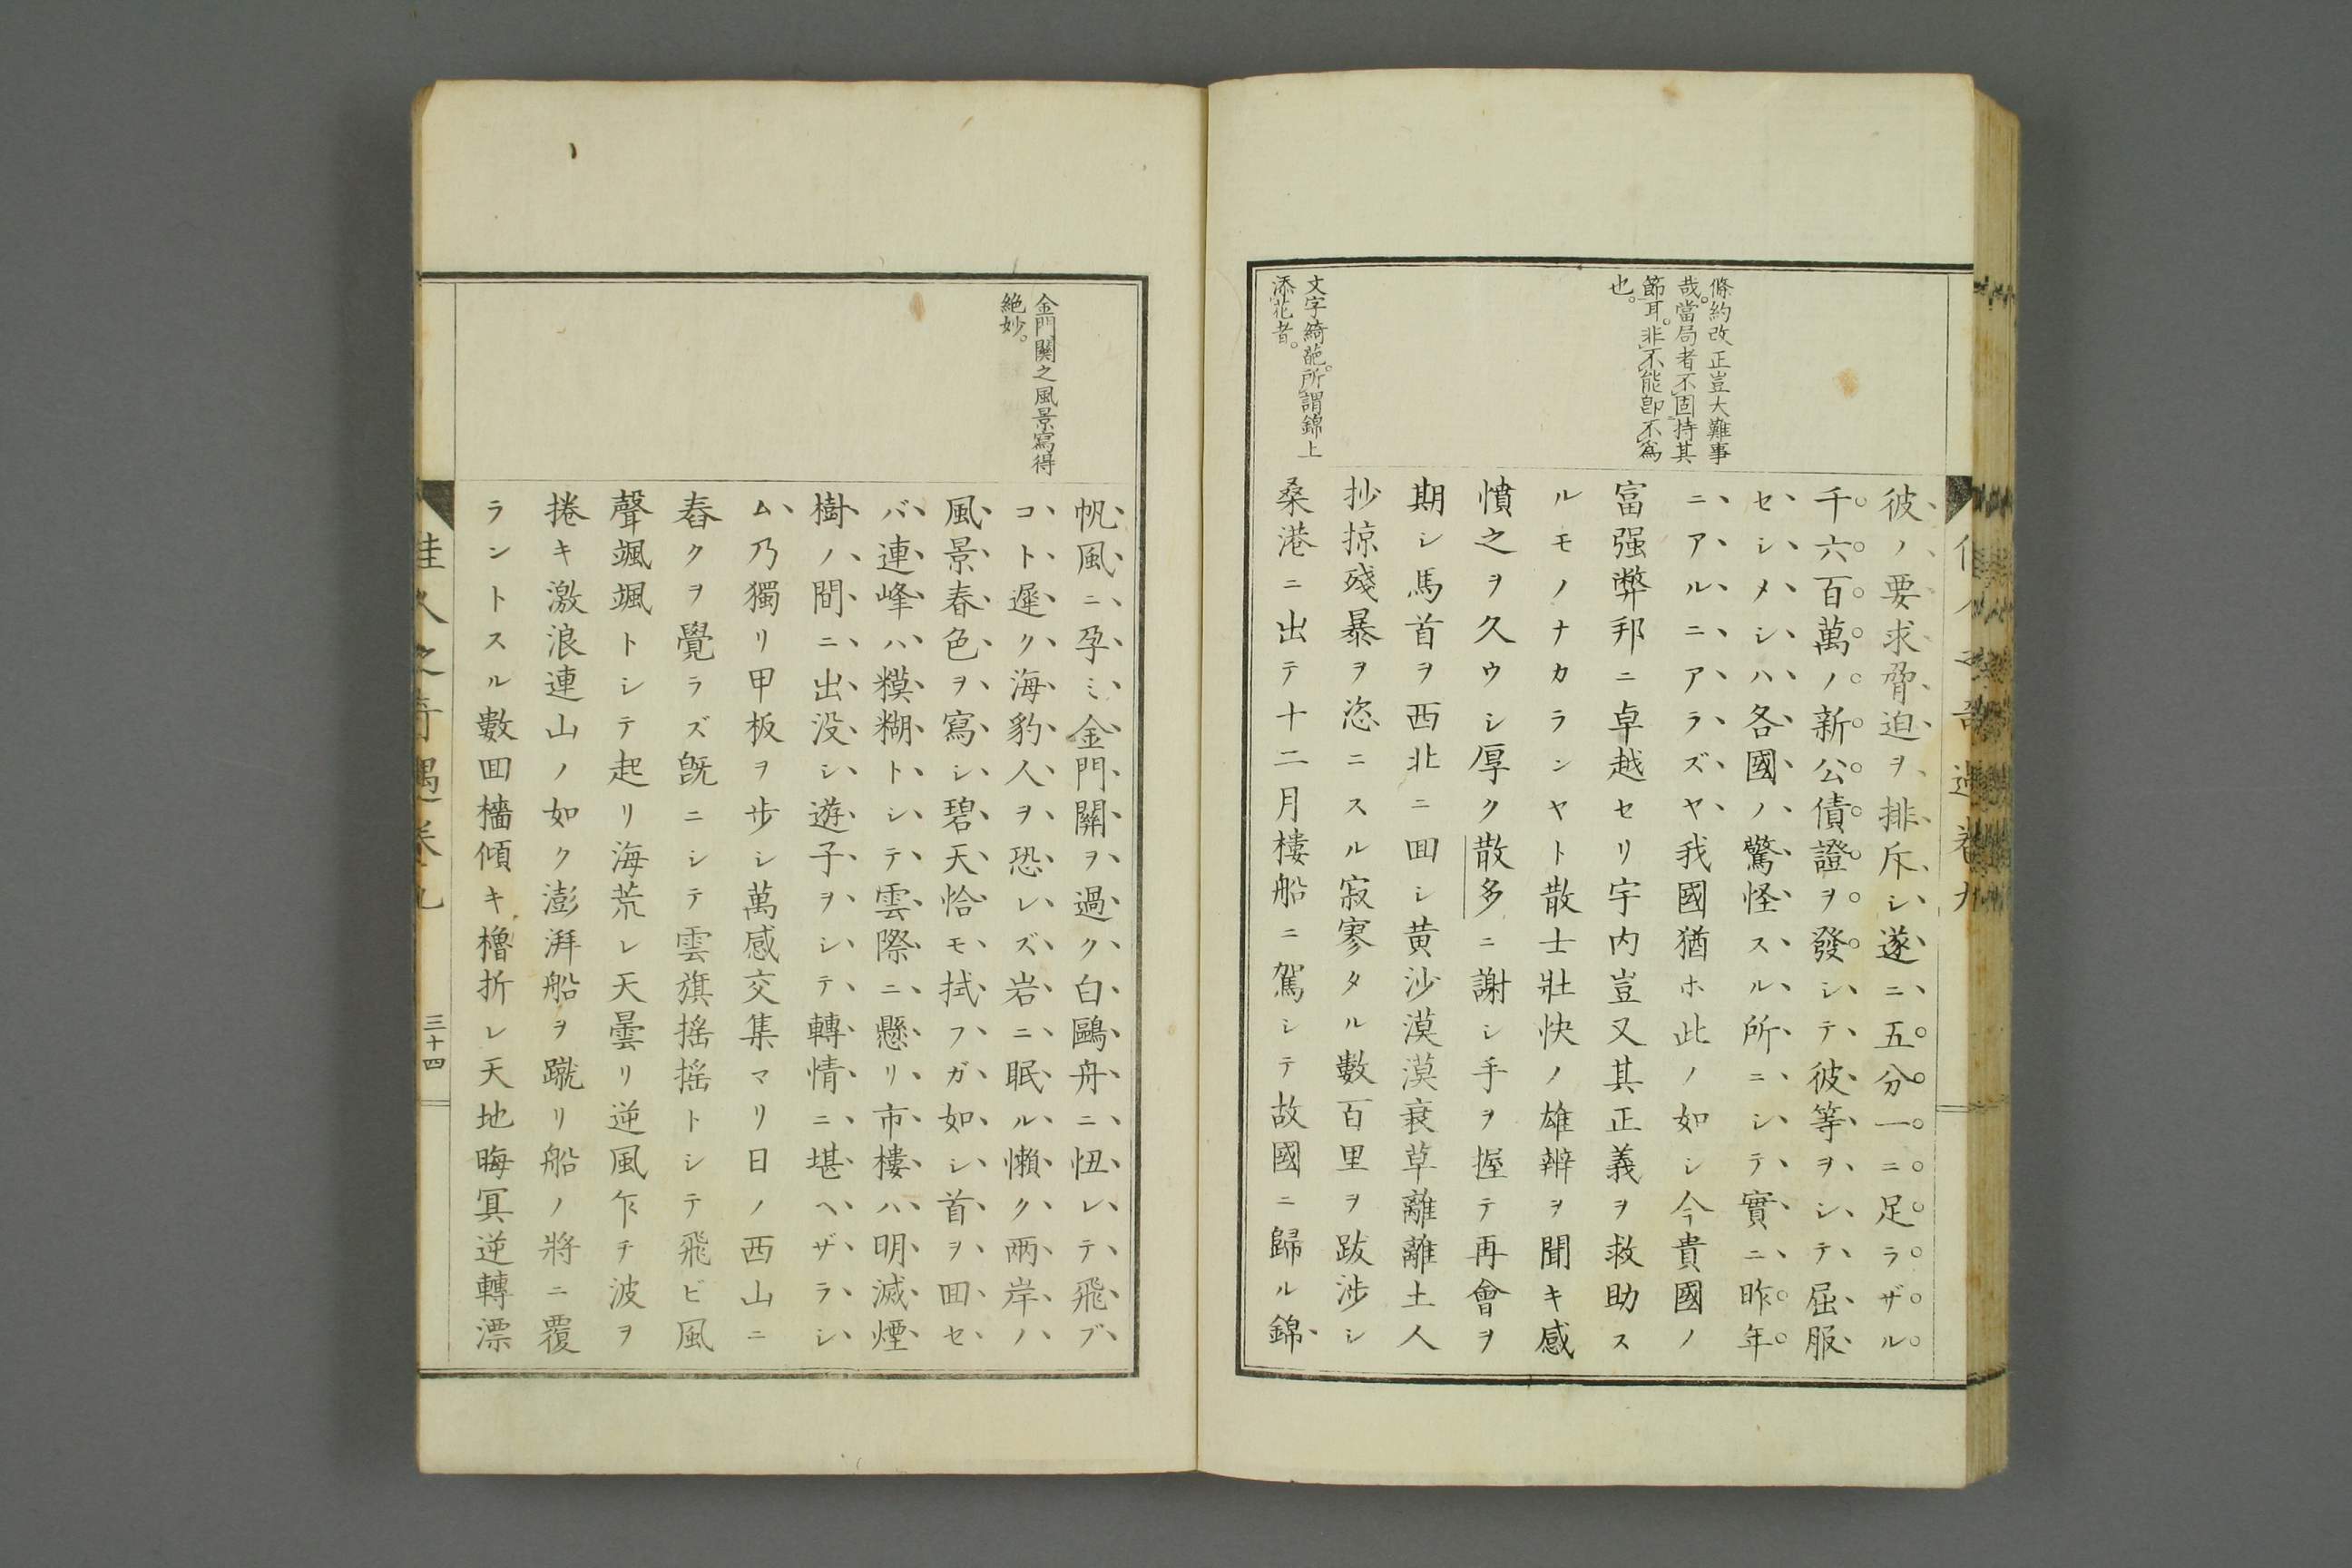 佳人之奇遇卷九
條約改正豈大難事
哉。當局者不固持其
節耳。非不能卽不爲
也。
文字綺葩。所謂錦上
添花者。
彼ノ要求脅迫ヲ排斥シ遂ニ五分一ニ足ラザル
千六百萬ノ新公債證ヲ發シテ彼等ヲシテ屈服
セシメシハ各國ノ驚怪スル所ニシテ實ニ昨年
ニアルニアラズヤ我國猶ホ此ノ如シ今貴國ノ
富强弊邦ニ卓越セリ宇内豈又其正義ヲ救助ス
ルモノナカランヤト散士壯快ノ雄辨ヲ聞キ感
憤之ヲ久ウシ厚ク散多ニ謝シ手ヲ握テ再會ヲ
期シ馬首ヲ西北ニ囬シ黄沙漠漠衰草離離土人
抄掠殘暴ヲ恣ニスル寂寥タル數百里ヲ跋涉シ
桑港ニ出テ十二月樓船ニ駕シテ故國ニ歸ル錦
金門關之風景寫得
絶妙。
帆風ニ孕ミ金門關ヲ過ク白鷗舟ニ忸レテ飛ブ
コト遲ク海豹人ヲ恐レズ岩ニ眠ル懶ク兩岸ノ
風景春色ヲ寫シ碧天恰モ拭フガ如シ首ヲ囬セ
バ連峰ハ糢糊トシテ雲際ニ懸リ市樓ハ明滅煙
樹ノ間ニ出没シ遊子ヲシテ轉情ニ堪ヘザラシ
ム乃獨リ甲板ヲ步シ萬感交集マリ日ノ西山ニ
舂クヲ覺ラズ旣ニシテ雲旗搖搖トシテ飛ビ風
聲颯颯トシテ起リ海荒レ天曇リ逆風乍チ波ヲ
捲キ激浪連山ノ如ク澎湃船ヲ蹴リ船ノ將ニ覆
ラントスル數囬檣傾キ櫓折レ天地晦冥逆轉漂
佳人之奇遇卷九
三十四